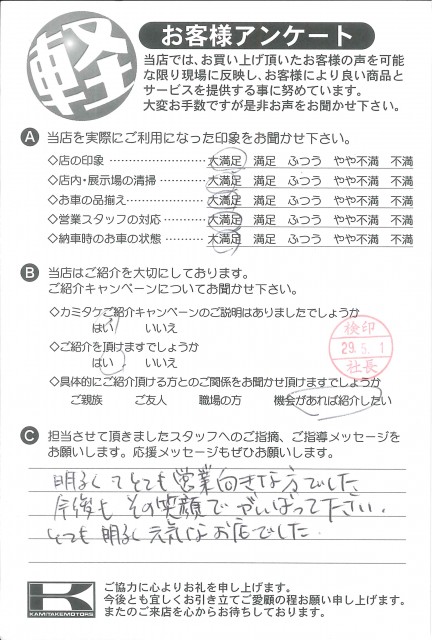 軽
お客様アンケート
当店では、お買い上げ頂いたお客様の声を可能
な限り現場に反映し、お客様により良い商品と
サービスを提供する事に努めています。
大変お手数ですが是非お声をお聞かせ下さい。
A 当店を実際にご利用になった印象をお聞かせ下さい。
◇店の印象 ………………… 大満足 満足 ふつう やや不満 不満
◇店内・展示場の清掃 ………… 大満足 満足 ふつう やや不満 不満
◇お車の品揃え ……………… 大満足 満足 ふつう やや不満 不満
◇営業スタッフの対応 ………… 大満足 満足 ふつう やや不満 不満
◇納車時のお車の状態 ………… 大満足 満足 ふつう やや不満 不満
B 当店はご紹介を大切にしております。
ご紹介キャンペーンについてお聞かせ下さい。
◇カミタケご紹介キャンペーンのご説明はありましたでしょうか
はい いいえ
◇ご紹介を頂けますでしょうか
はい いいえ
◇具体的にご紹介頂ける方とのご関係をお聞かせ頂けますでしょうか
ご親族 ご友人 職場の方 機会があれば紹介したい
検印
29.5.1
社長
C 担当させて頂きましたスタッフへのご指摘、ご指導メッセージを
お願いします。応援メッセージもぜひお願いします。
明るくてとても営業向きな方でした
今後も その笑顔で がんばって下さい.
とても 明るく 元気な お店でした.
K
KAMITAKEMOTORS
ご協力に心よりお礼を申し上げます。
今後とも宜しくお引き立てご愛顧の程お願い申し上げます。
またのご来店を心からお待ちしております。